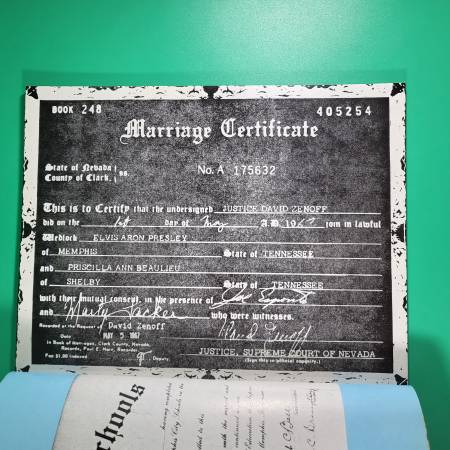 BOOK 248 405254
Marriage Certificate
State of Nevada
County of Clark, ss. No. A 175632
This is to Certify that the undersigned JUSTICE DAVID ZENOFF
did on the 1st day of May A.D. 1967 join in lawful
Wedlock ELVIS ARON PRESLEY
of MEMPHIS State of TENNESSEE
and PRISCILLA ANN BEAULIEU
of SHELBY State of TENNESSEE
with their mutual consent, in the presence of Joe Esposito
and Marty Lacker who were witnesses.
Recorded at the Request of David Zenoff
Date MAY 5 1967 David Zenoff
In Book of Marriages, Clark County, Nevada,
Records, Paul E. Horn, Recorder. JUSTICE, SUPREME COURT OF NEVADA
Fee $1.00 indexed Deputy (Sign in official capacity.)